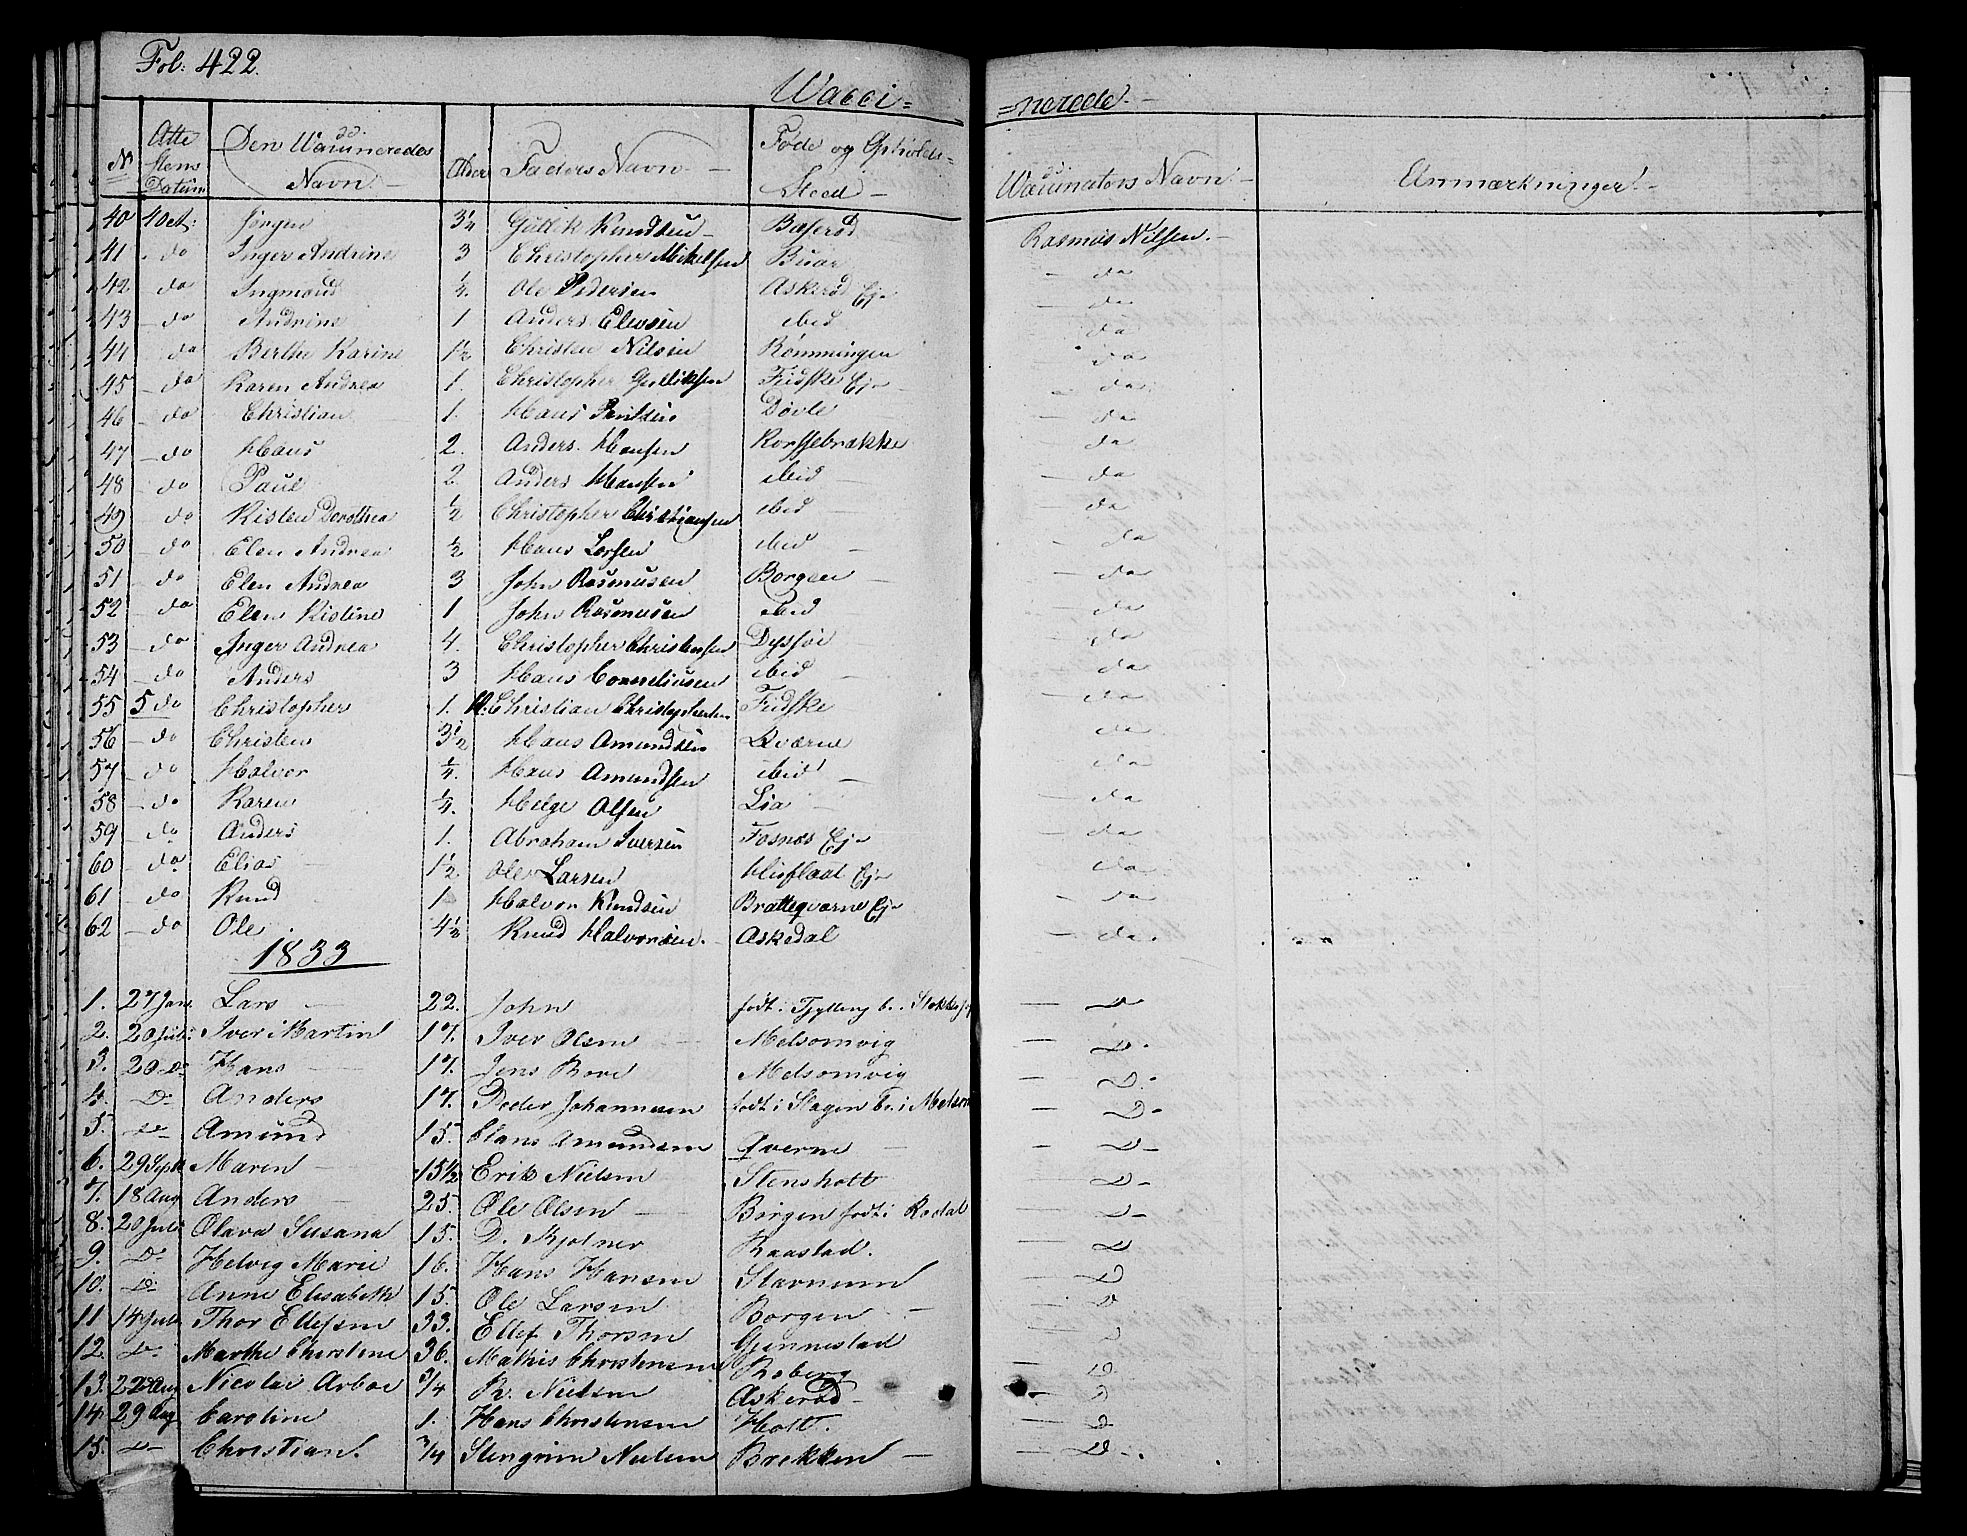 Fol: 422.
Wacci= =nerede.
No Atte stens Datum Den Waccineredes Navn. Alder Faders Navn. Føde og Opholds= Sted Waccinators Navn. Anmærkninger.
40 4 Oct: Jørgen 3 1/4 Gudik Knudsen Bæserød Rasmus Nilsen.
41 do Inger Andrine 3 Christopher Mikelsen Buar do
42 do Ingmoud 1/4 Ole Pedersen Askerød Ej. do
43 do Andrine 1 Anders Elevsen ibid do
44 do Berthe Karine 1 1/2 Christen Nilsen Rømmingen do
45 do Karen Andrea 1. Christopher Gulliksen Fridske Ej. do
46 do Christian 1. Hans Døvle do
47 do Hans 2. Anders Hansen Korssebrække do
48 do Paul 2. Anders Hansen ibid do
49 do Kisten Dorothea 1/2 Christopher Christiansen ibid do
50 do Elen Andrea 1/2 Hans Larsen ibid do
51 do Elen Andrea 3 John Rasmusen Borgen do
52 do Elen Kistine 1 John Rasmusen ibid do
53 do Inger Andrea 4. Christopher Christensen do
54 do Anders 3 Hans Corneliusen ibid do
55 5 do Christopher 1. Christian Christophersen Fridske do
56 do Christen 3 1/2 Hans Amundsen Qværne do
57 do Halvor 1/4. Hans Amundsen ibid do
58 do Karen 1/4. Helge Olsen Lia do
59 do Anders 1. Abraham Iversen Fosnæs Ej. do
60 do Elias 1 1/2 Ole Larsen Ej. do
61 do Knud 1 Halvor Knudsen Bratteqværne Ej. do
62 do Ole 4 1/2 Knud Halvorsen. Askedal do.
1833
1. 27 Jan. Lars 22. John født i b. i D
2. 20 Juli Iver Martin 17. Iver Olsen Melsomvig D.
3. 20 Do Hans 17. Jens Bove Melsomvig D.
4. D. Anders 17. Peder Johannesen født i Slagen b. i Melsom D.
5. D Amund 15. Hans Amundsen Qverne D
6. 29 Sept. Maren 15 1/2 Erik Nielsen Stensholt D
7. 18 Aug Anders 25. Ole Olsen Birgen født i Rodal D
8. 20 Juli Olava Susana 15. D. Kjolner Raastad. D
9. D. Helvig Marie 16. Hans Hansen Stavnum D
10. D. Anne Elisabeth 15. Ole Larsen Borgen D
11 14 Juli Thor Ellefsen 33. Ellef Thorsen Gjennestad D
12. D. Marthe Christine 36. Mathis Christensen Roberg D
13. 22 Aug Nicolai Arboe 3/4 R. Nielsen Askerød D
14. 29 Aug Caroline 1. Hans Christensen Holt. D
15. D Christian. 3/4 Stengrim Nielsen Brekken D.